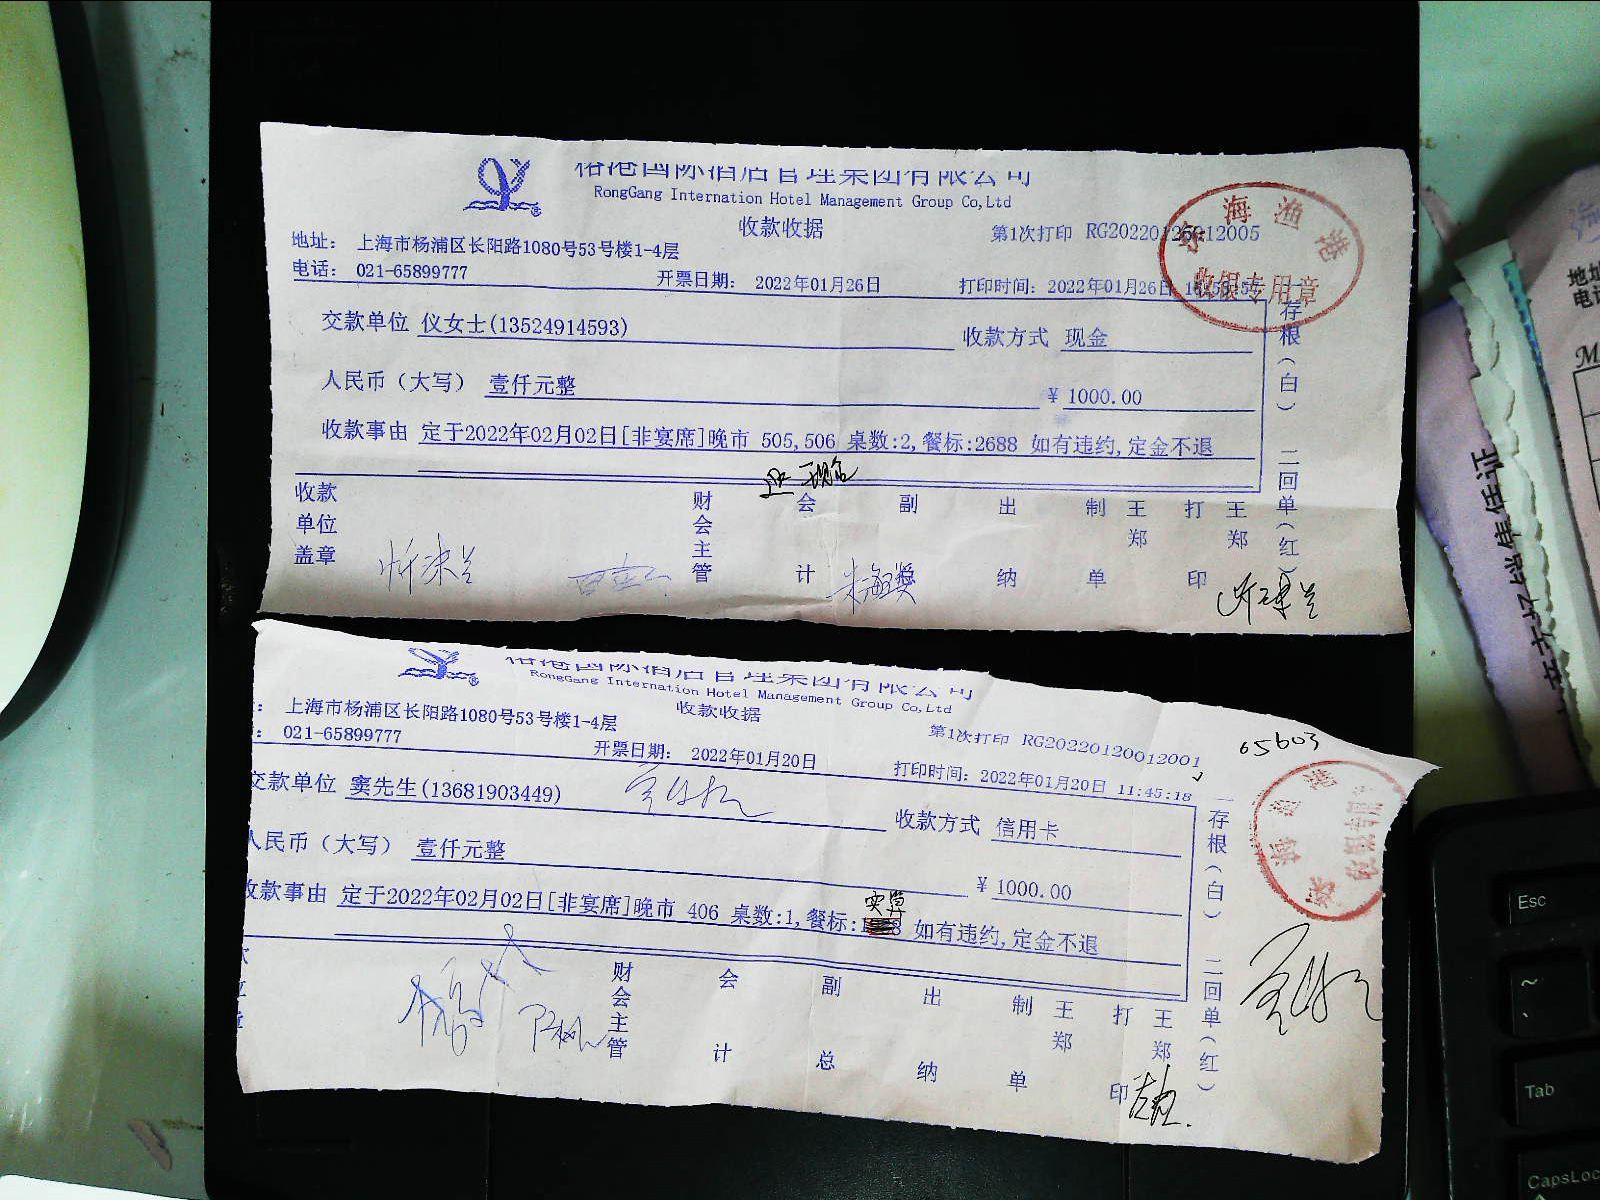 港国际酒店管理集团有限公司
RongGang Internation Hotel Management Group Co,Ltd
收款收据
第1次打印 RG20220126012005
地址： 上海市杨浦区长阳路1080号53号楼1-4层
电话： 021-65899777
开票日期： 2022年01月26日
打印时间：2022年01月26日
海渔港
收银专用章
交款单位 仪女士(13524914593)
收款方式 现金
人民币（大写） 壹仟元整
￥ 1000.00
收款事由 定于2022年02月02日[非宴席]晚市 505,506 桌数:2,餐标:2688 如有违约,定金不退
现金
收款单位盖章
财会主管
会计
副总
出纳
制单
王郑
打印
王郑
存根（白） 二回单（红）
港国际酒店管理集团有限公司
RongGang Internation Hotel Management Group Co,Ltd
收款收据
第1次打印 RG20220120012001
65603
： 上海市杨浦区长阳路1080号53号楼1-4层
： 021-65899777
开票日期： 2022年01月20日
打印时间：2022年01月20日 11:45:18
海渔港
交款单位 窦先生(13681903449)
收款方式 信用卡
人民币（大写） 壹仟元整
￥ 1000.00
收款事由 定于2022年02月02日[非宴席]晚市 406 桌数:1,餐标:1 8 如有违约,定金不退
财会主管
会计
副总
出纳
制单
王郑
打印
王郑
存根（白） 二回单（红）
地址
电话
Esc
~
Tab
CapsLoc